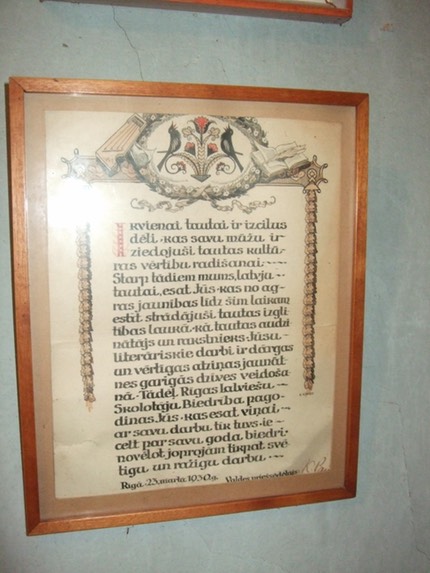 Ikvienai tautai ir izcilus
dēli, kas savu mūžu ir
ziedojuši tautas kultū-
ras vērtību radīšanai
Starp tādiem mums, latvju
tautai, esat Jūs, kas no ag-
ras jaunības līdz šim laikam
estit strādājuši tautas izglī-
tības laukā, kā tautas audzi
nātājs un rakstnieks. Jūsu
literāriskie darbi ir dārgas
un vērtīgas atziņas jaunāt-
nes garīgās dzīves veidoša-
nā. Tādēļ, Rīgas latviešu
Skolotāju Biedrība pago-
dinas Jūs, kas esat viņai
ar savu darbu tik tuvs, ie-
celt par savu goda biedri,
novēlot joprojām tikpat svē
tīgu un ražīgu darbu.
Rīgā, 23. martā 1930g. Valdes priekšsēdētājs